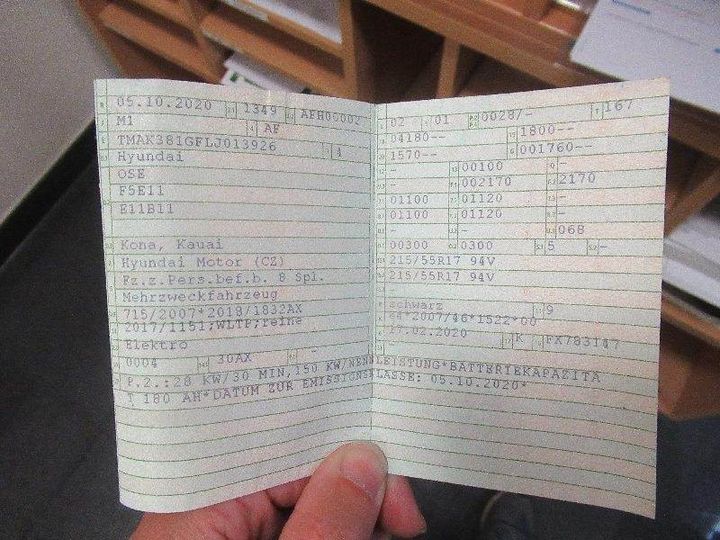 05.10.2020 1349 AFH00002
M1 AF
TMAK381GFLJ013926 4
Hyundai
OSE
F5E11
E11B11
Kona, Kauai
Hyundai Motor (CZ)
Fz.z.Pers.bef.b. 8 Spl.
Mehrzweckfahrzeug
715/2007*2018/1832AX
2017/1151;WLTP;reine
Elektro
0004 30AX -
02 01 0028/- 167
04180-- 1800--
1570-- 001760--
- 00100 -
- 002170 2170
01100 01120 -
01100 01120 -
- - 068
00300 0300 5 -
215/55R17 94V
215/55R17 94V
-
schwarz 9
e4*2007/46*1522*00
17.02.2020 K
P.2.:28 KW/30 MIN,150 KW/NENNLEISTUNG*BATTERIEKAPAZITA
T 180 AH*DATUM ZUR EMISSIONSKLASSE: 05.10.2020*